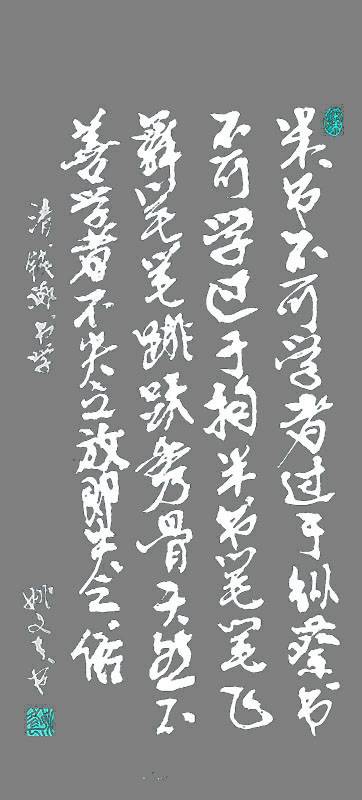 米书不可学者过于纵蔡书
不可学过于拘米书笔笔飞
舞笔笔跳跃秀骨天然不
善学者不失之放即失之俗
清钱泳书学
姚文